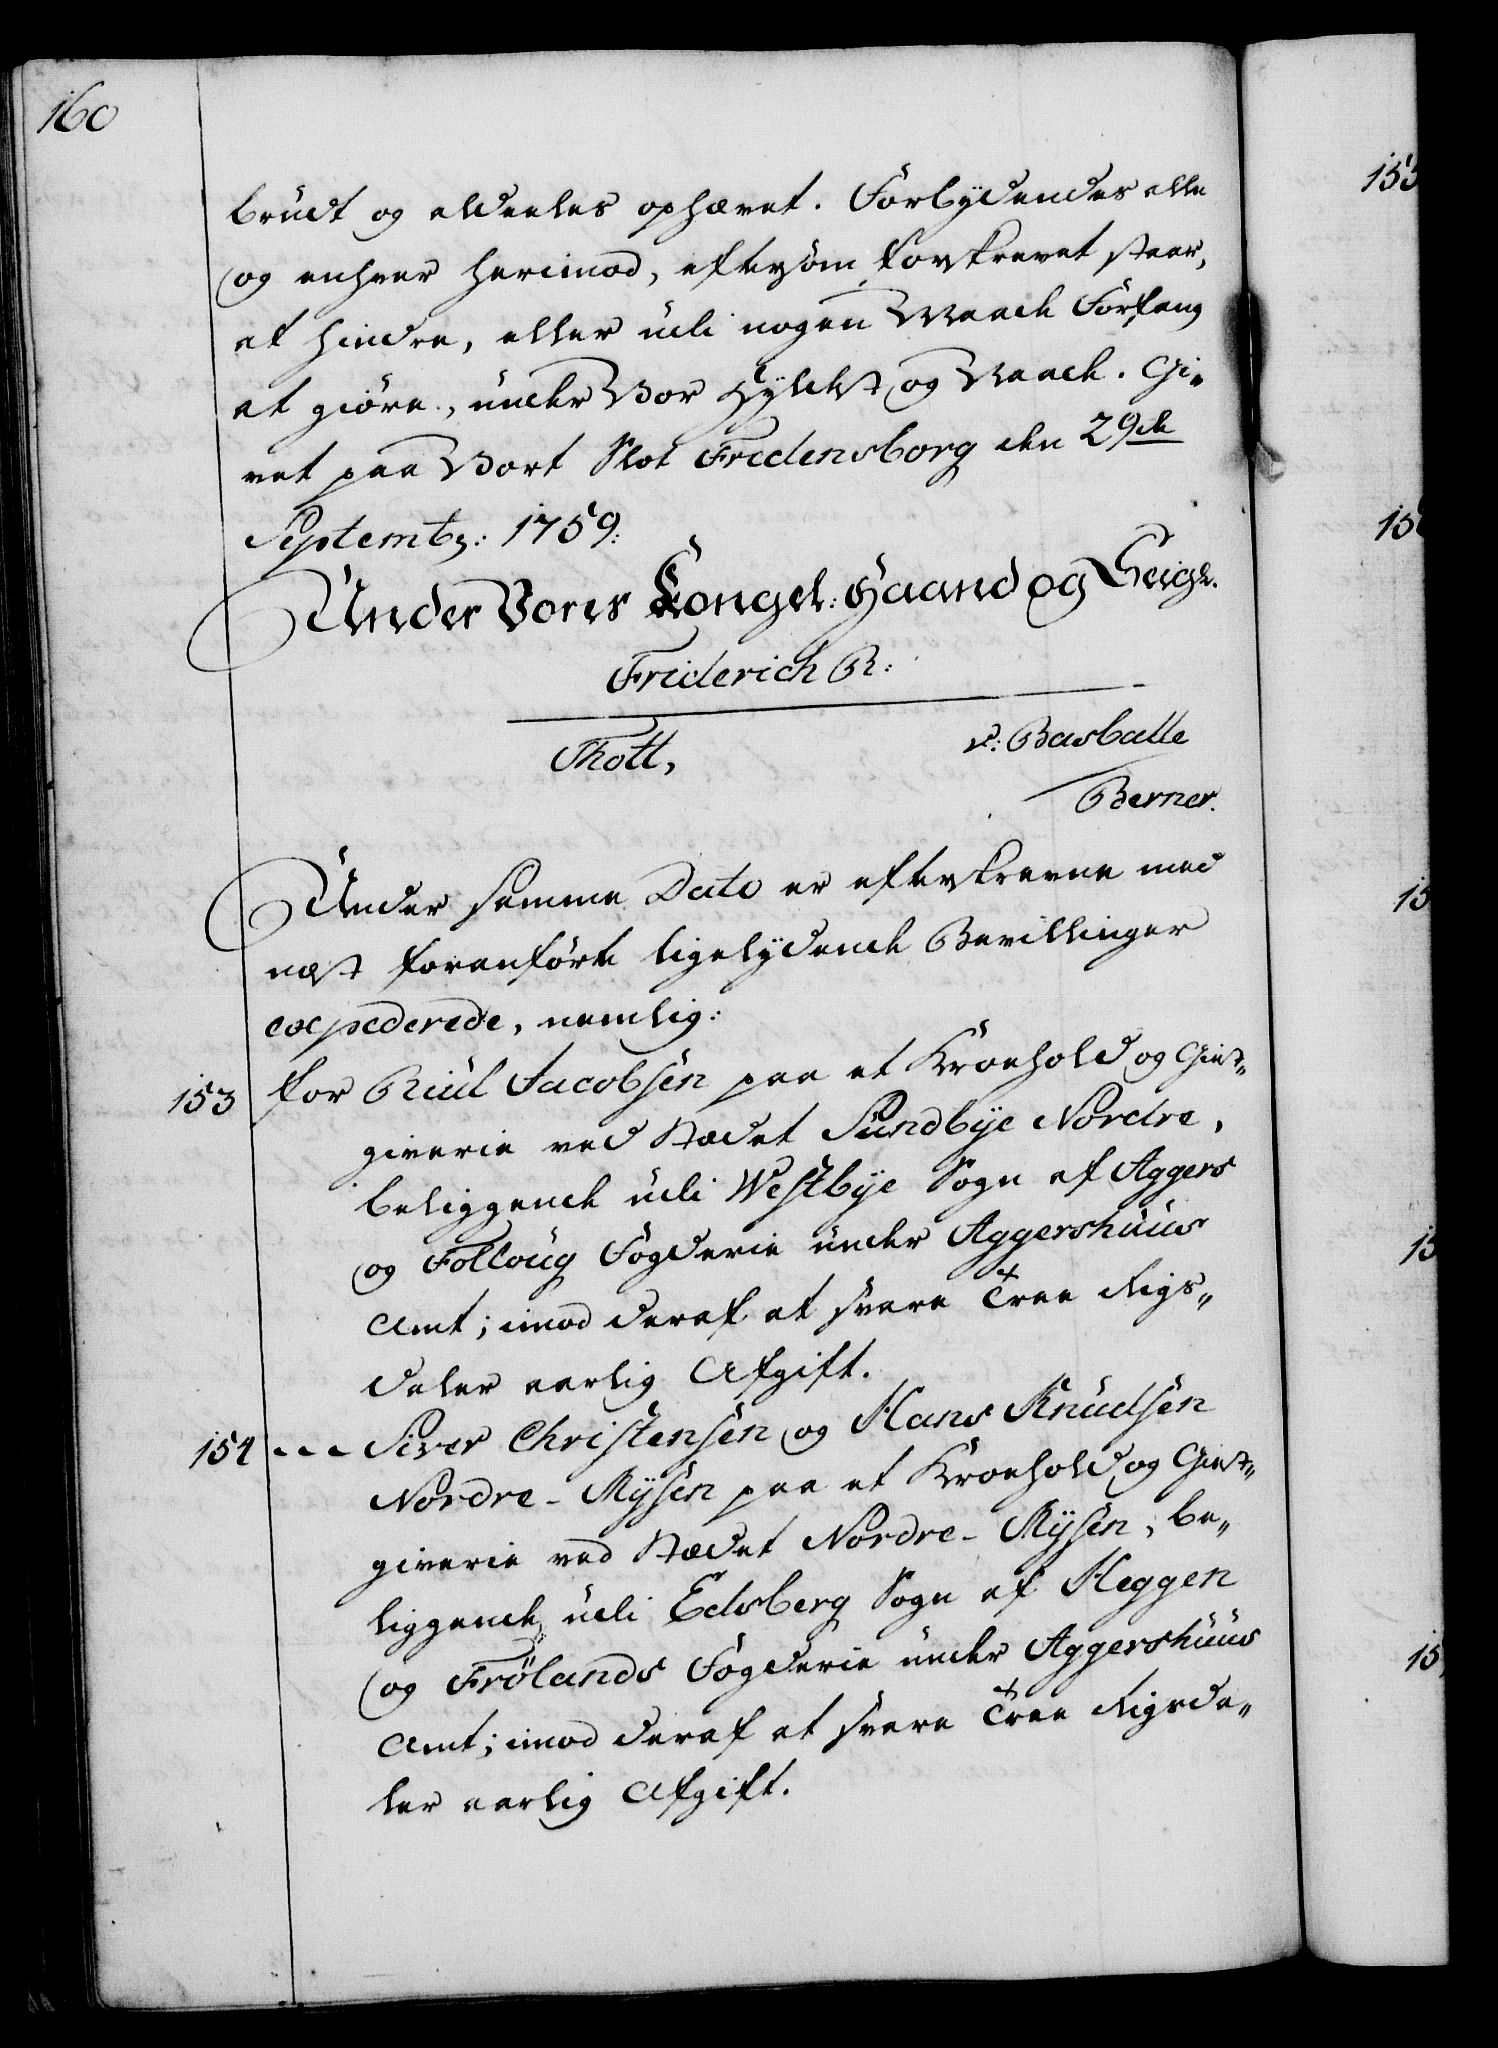 160
brudt og aldeeles ophævet. Forbydendes alle
og enhver herimod, eftersom forskrevet staar,
at hindre, eller udi nogen Maade Forfang
at giöre, under Vor Hyldest og Naade. Gi-
vet paa Vort Slot Fredensborg den 29de
Septembr: 1759:
Under Vores Kongel: Haand og Seigl.
Friderich R:
Thott,
v: Basballe
Berner.
Under samme Dato er efterskrevne med
næst foranförte ligelydende Bevillinger
expederede, nemlig:
153 for Riül Jacobsen paa et Kroehold og Giest-
giverie ved Stædet Sundbye Nordre,
beliggende udi Westbye Sogn af Aggers
og Folloug Fogderie under Aggershuus
Amt; imod deraf at svare Tree Rigs-
daler aarlig Afgift.
154 --- Siver Christensen og Hans Knudsen
Nordre-Mysen paa et Kroehold og Giest-
giverie ved Stædet Nordre-Mysen, be-
liggende udi Edsberg Sogn af Heggen
og Frölands Fogderie under Aggershuus
Amt; imod deraf at svare Tree Rigsda-
ler aarlig Afgift.